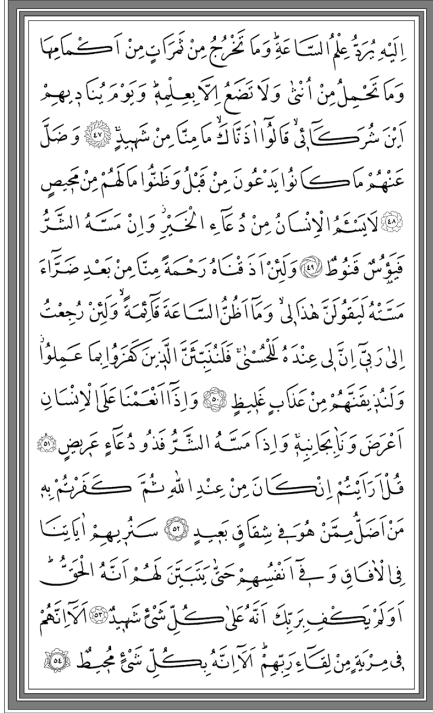 اِلَيْهِ يُرَدُّ عِلْمُ السَّاعَةِۜ وَمَا تَخْرُجُ مِنْ ثَمَرَاتٍ مِنْ اَكْمَامِهَا
وَمَا تَحْمِلُ مِنْ اُنْثٰى وَلَا تَضَعُ اِلَّا بِعِلْمِه۪ۜ وَيَوْمَ يُنَاد۪يهِمْ
اَيْنَ شُرَكَٓاء۪يۙ قَالُٓوا اٰذَنَّاكَۙ مَا مِنَّا مِنْ شَه۪يدٍۚ ﴿٤٧﴾ وَضَلَّ
عَنْهُمْ مَا كَانُوا يَدْعُونَ مِنْ قَبْلُ وَظَنُّوا مَا لَهُمْ مِنْ مَح۪يصٍ
﴿٤٨﴾ لَا يَسْـَٔمُ الْاِنْسَانُ مِنْ دُعَٓاءِ الْخَيْرِۘ وَاِنْ مَسَّهُ الشَّرُّ
فَيَؤُ۫سٌ قَنُوطٌ ﴿٤٩﴾ وَلَئِنْ اَذَقْنَاهُ رَحْمَةً مِنَّا مِنْ بَعْدِ ضَرَّٓاءَ
مَسَّتْهُ لَيَقُولَنَّ هٰذَا ل۪يۙ وَمَٓا اَظُنُّ السَّاعَةَ قَٓائِمَةًۙ وَلَئِنْ رُجِعْتُ
اِلٰى رَبّ۪ٓي اِنَّ ل۪ي عِنْدَهُ لَلْحُسْنٰىۚ فَلَنُنَبِّئَنَّ الَّذ۪ينَ كَفَرُوا بِمَا عَمِلُواۘ
وَلَنُذ۪يقَنَّهُمْ مِنْ عَذَابٍ غَل۪يظٍ ﴿٥٠﴾ وَاِذَٓا اَنْعَمْنَا عَلَى الْاِنْسَانِ
اَعْرَضَ وَنَاٰ بِجَانِبِه۪ۚ وَاِذَا مَسَّهُ الشَّرُّ فَذُو دُعَٓاءٍ عَر۪يضٍ ﴿٥١﴾
قُلْ اَرَاَيْتُمْ اِنْ كَانَ مِنْ عِنْدِ اللّٰهِ ثُمَّ كَفَرْتُمْ بِه۪
مَنْ اَضَلُّ مِمَّنْ هُوَ ف۪ي شِقَاقٍ بَع۪يدٍ ﴿٥٢﴾ سَنُر۪يهِمْ اٰيَاتِنَا
فِي الْاٰفَاقِ وَف۪ٓي اَنْفُسِهِمْ حَتّٰى يَتَبَيَّنَ لَهُمْ اَنَّهُ الْحَقُّۜ
اَوَلَمْ يَكْفِ بِرَبِّكَ اَنَّهُ عَلٰى كُلِّ شَيْءٍ شَه۪يدٌ ﴿٥٣﴾ اَلَٓا اِنَّهُمْ
ف۪ي مِرْيَةٍ مِنْ لِقَٓاءِ رَبِّهِمْۜ اَلَٓا اِنَّهُ بِكُلِّ شَيْءٍ مُح۪يطٌ ﴿٥٤﴾